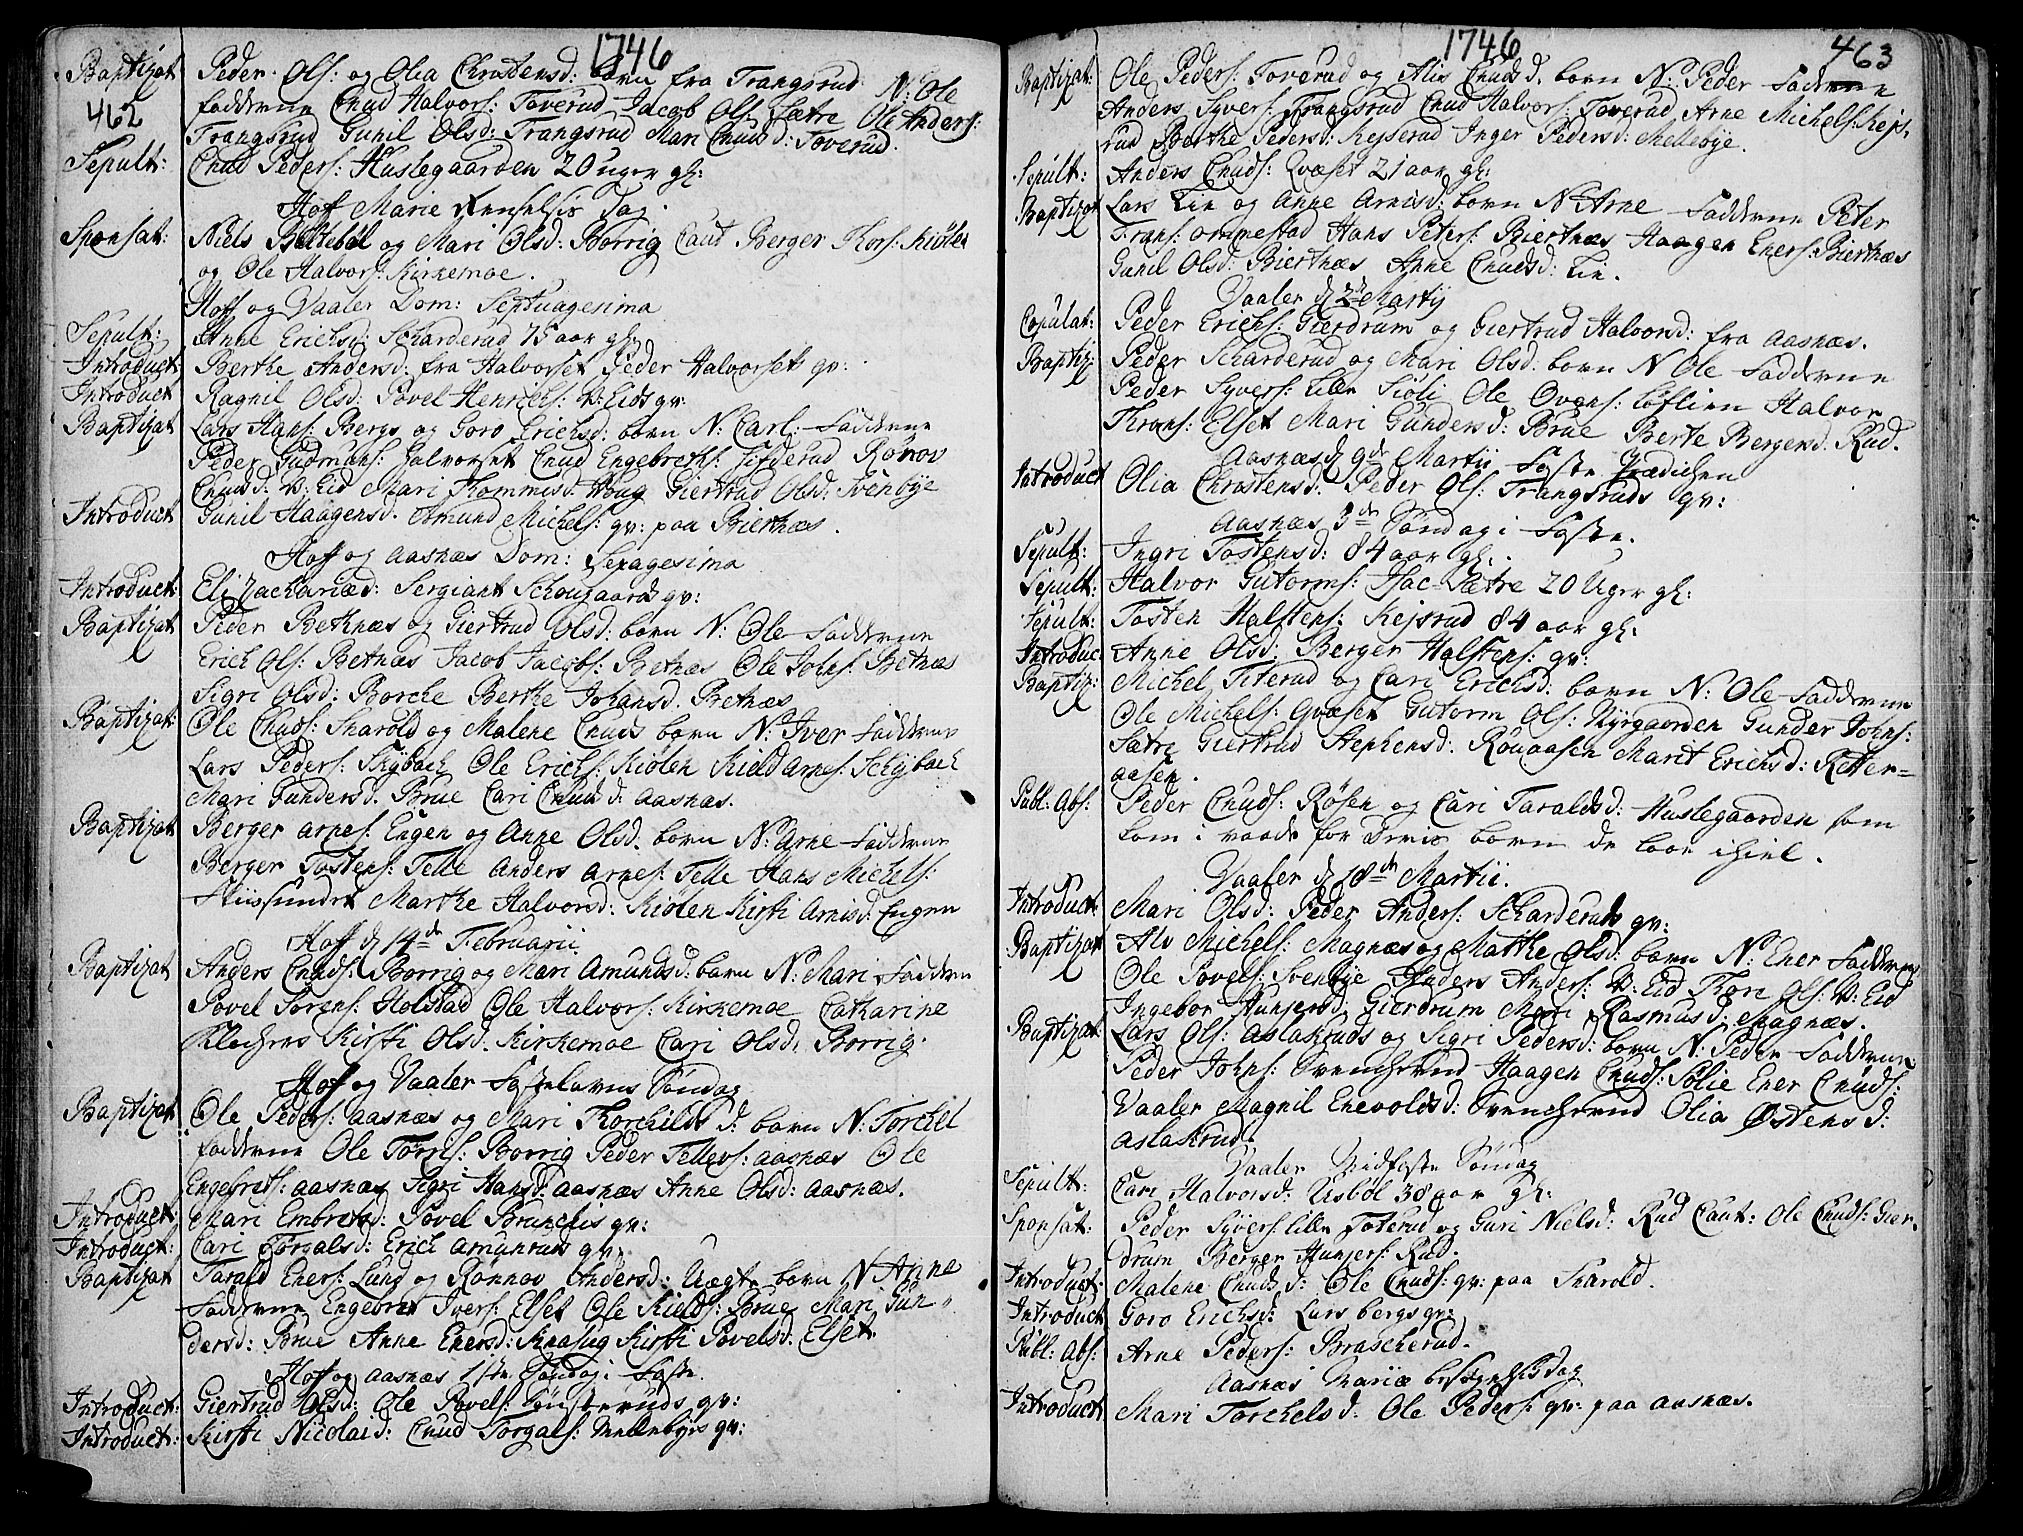 1746
462
Baptizat Peder Ols: og Olia Christensd: barn fra Trangsrud N: Ole
fadderne Cnud Halvors: Toverud Jacob Ols: Sætre Ole Anders:
Trangsrud Gunil Olsd: Trangsrud Mari Cnudsd: Toverud.
Sepult: Cnud Peders: Hustegaarden 20 uger gl:
Hoff Marie Renselsis Dag.
Sponsat: Niels Beltebøl og Mari Olsd: Borrig Caut Berger Thors: Kiølen
og Ole Halvors: Kirkemoe.
Hoff og Vaaler Dom: Septuagesima
Sepult: Anne Erichsd: Scharderud 75 aar gl:
Introduct Berthe Andersd: fra Halvorset Peder Halvorset qv:
Introduct Ragnil Olsd: Povel Henrichs: V: Eids qv:
Baptizat Lars Hans: Bergs og Goro Erichsd: barn N: Carl Fadderne
Peder Gudmuns: Halvorset Cnud Engebrethss: Rønov
Cnudsd: V: Eid Mari Thommisd: Houg Giertrud Olsd: Svenbye
Introduct Gunil Haagensd. Amund Michels: qv: paa Biertnæs.
Hoff og Aasnæs Dom: Sexagesima
Introduct: Eli Zachariæd: Sergiant Schougaards qv:
Baptizat Peder Bethnæs og Giertrud Olsd: barn N: Ole Fadderne
Erich Ols: Betnæs Jacob Jacobs: Betnæs Ole Johns: Betnæs
Sigri Olsd: Borche Berthe Johansd. Betnæs
Baptizat: Ole Cnuds: Snarold og Malene Cnuds barn N: Iver Fadderne
Lars Peders: Skybach Ole Erichs: Kiølen Kield Arnes: Schybach
Mari Gundersd. Brue Cari Cnudsd: Aasnæs.
Baptizat Berger Arnes: Engen og Anne Olsd. barn N: Arne Fadderne
Berger Tostens: Telle Anders Arnes: Telle Hans Michels:
Marthe Halvorsd: Kiølen Kirsti Arnisd: Engen
Hoff d 14de Februarii
Baptizat Anders Cnuds: Borrig og Mari Amundsd: barn N: Mari Faddern
Povel Sørens: Holstad Ole Halvors: Kirkemoe Catharine
Kirsti Olsd. Kirkemoe Cari Olsd. Borrig.
Hoff og Vaaler Fastelavns Søndag
Baptizat Ole Peders: Aasnæs og Mari Thorchilds d: barn N: Torchel
fadderne Ole Torrls: Borrig Peder Tellevs: Aasnæs Ole
Engebrets: Aasnæs Sigri Hansd: Aasnæs Anne Olsd: Aasnæs.
Introduct: Mari Embretsd: Povel Brunchis qv:
Introduct: Cari Torgalsd: Erich Amunruds qv:
Baptizat Tarald Eners: Lund og Rønnov Andersd: Uægte barn N Anne
Fadderne Engebret Ivers: Elset Ole Kields: Brue Mari Gun
dersd: Brue Anne Enersd: Knasug Kirsti Povelsd. Elset
Hof og Aasnæs 1ste Søndag i Faste.
Introduct: Giertrud Olsd: Ole Povels: qv:
Introduct: Kirsti Nicolaid: Cnud Torgals: Mellebyes qv:
1746
463
Baptizat: Ole Peders: Toverud og Alis Cnudsd. barn N: Peder Fadderne
Anders Syvers: Trangsrud Cnud Halvors: Toverud Arne Michels: Kejs
rud Berthe Pedersd: Kejserud Inger Pedersd: Mellebye.
Sepult: Anders Cnuds: Qvæset 21 aar gl:
Baptizat Lars Lie og Anne Arnisd: barn N: Arne Fadderne Peter
Frans: Ommestad Hans Peters: Biertnæs Haagen Eners: Biertnæs
Gunil Olsd: Biertnæs Anne Cnudsd: Lie.
Vaaler d 2de Martij
Copulat: Peder Erichs: Gierdrum og Giertrud Halvorsd: fra Aasnæs.
Baptiz: Peder Scharderud og Mari Olsd: barn N Ole Fadderne
Peder Syvers: Lille Siøli Ole Ovens: Løflien Halvor
Throns: Elset Mari Gundersd: Brue Berte Bergersd. Rud.
Aasnæs d 9de Martij Faste Prædichen
Introduct Olia Christensd. Peder Ols: Trangsruds qv:
Aasnæs 3de Søndag i Faste.
Sepult: Ingri Tostensd: 84 aar gl:
Sepult: Halvor Gutorms: Sætre 20 Uger gl:
Sepult: Tosten Halstens: Kejsrud 84 aar gl:
Introduc: Anne Olsd: Berger Halstens: qv:
Baptiz: Michel Titerud og Cari Erichsd: barn N: Ole Fadderne
Ole Michels: Qvæset Gutorm Ols: Nyrgaarden Gunder Johns:
Sætre Giertrud Stephensd: Rønaasen Marit Erichsd: Retter=
aasen.
Publ: Abs: Peder Cnuds: Røsen og Cari Taraldsd: Hustegaarden som
kom i vaade for deris barn de laae ihiel.
Vaaler d 18de Martii.
Introduct Mari Olsd: Peder Anders: Scharderuds qv:
Baptizat Alv Michels: Magnæs og Mathe Olsd: barn N: Ener Fadderne
Ole Povels: Svenbye Anders Anders: V: Eid Thore Ols: V: Eid
Ingebor Gunjersd: Gierdrum Mari Rasmusd: Magnæs.
Baptizat Lars Ols: Aslakruds og Sigri Pedersd: barn N: Peder Fadderne
Peder Johns: Svenchrud Haagen Cnuds: Sølie Ener Cnuds:
Vaaler Magnil Enevoldsd: Svenchrud Olia Østensd:
Aslakrud.
Vaaler Midfaste Søndag
Sepult: Cari Halvorsd: Risbøl 38 aar gl:
Sponsat: Peder Syvers: lille Toterud og Guri Nielsd: Rud Caut: Ole Cnuds: Gier
drum Berger Gunjers: Rud.
Introduct: Malene Cnuds d: Ole Cnuds: qv: paa Snarold.
Introduct Goro Erichsd: Lars Bergs qv:
Publ: Abs: Arne Peders: Brascherud.
Aasnæs Mariæ besøgelsesdag
Introduct Mari Torchelsd: Ole Peders: qv: paa Aasnæs.